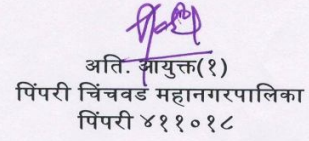 अति. आयुक्त(१)
पिंपरी चिंचवड महानगरपालिका
पिंपरी ४११०१८